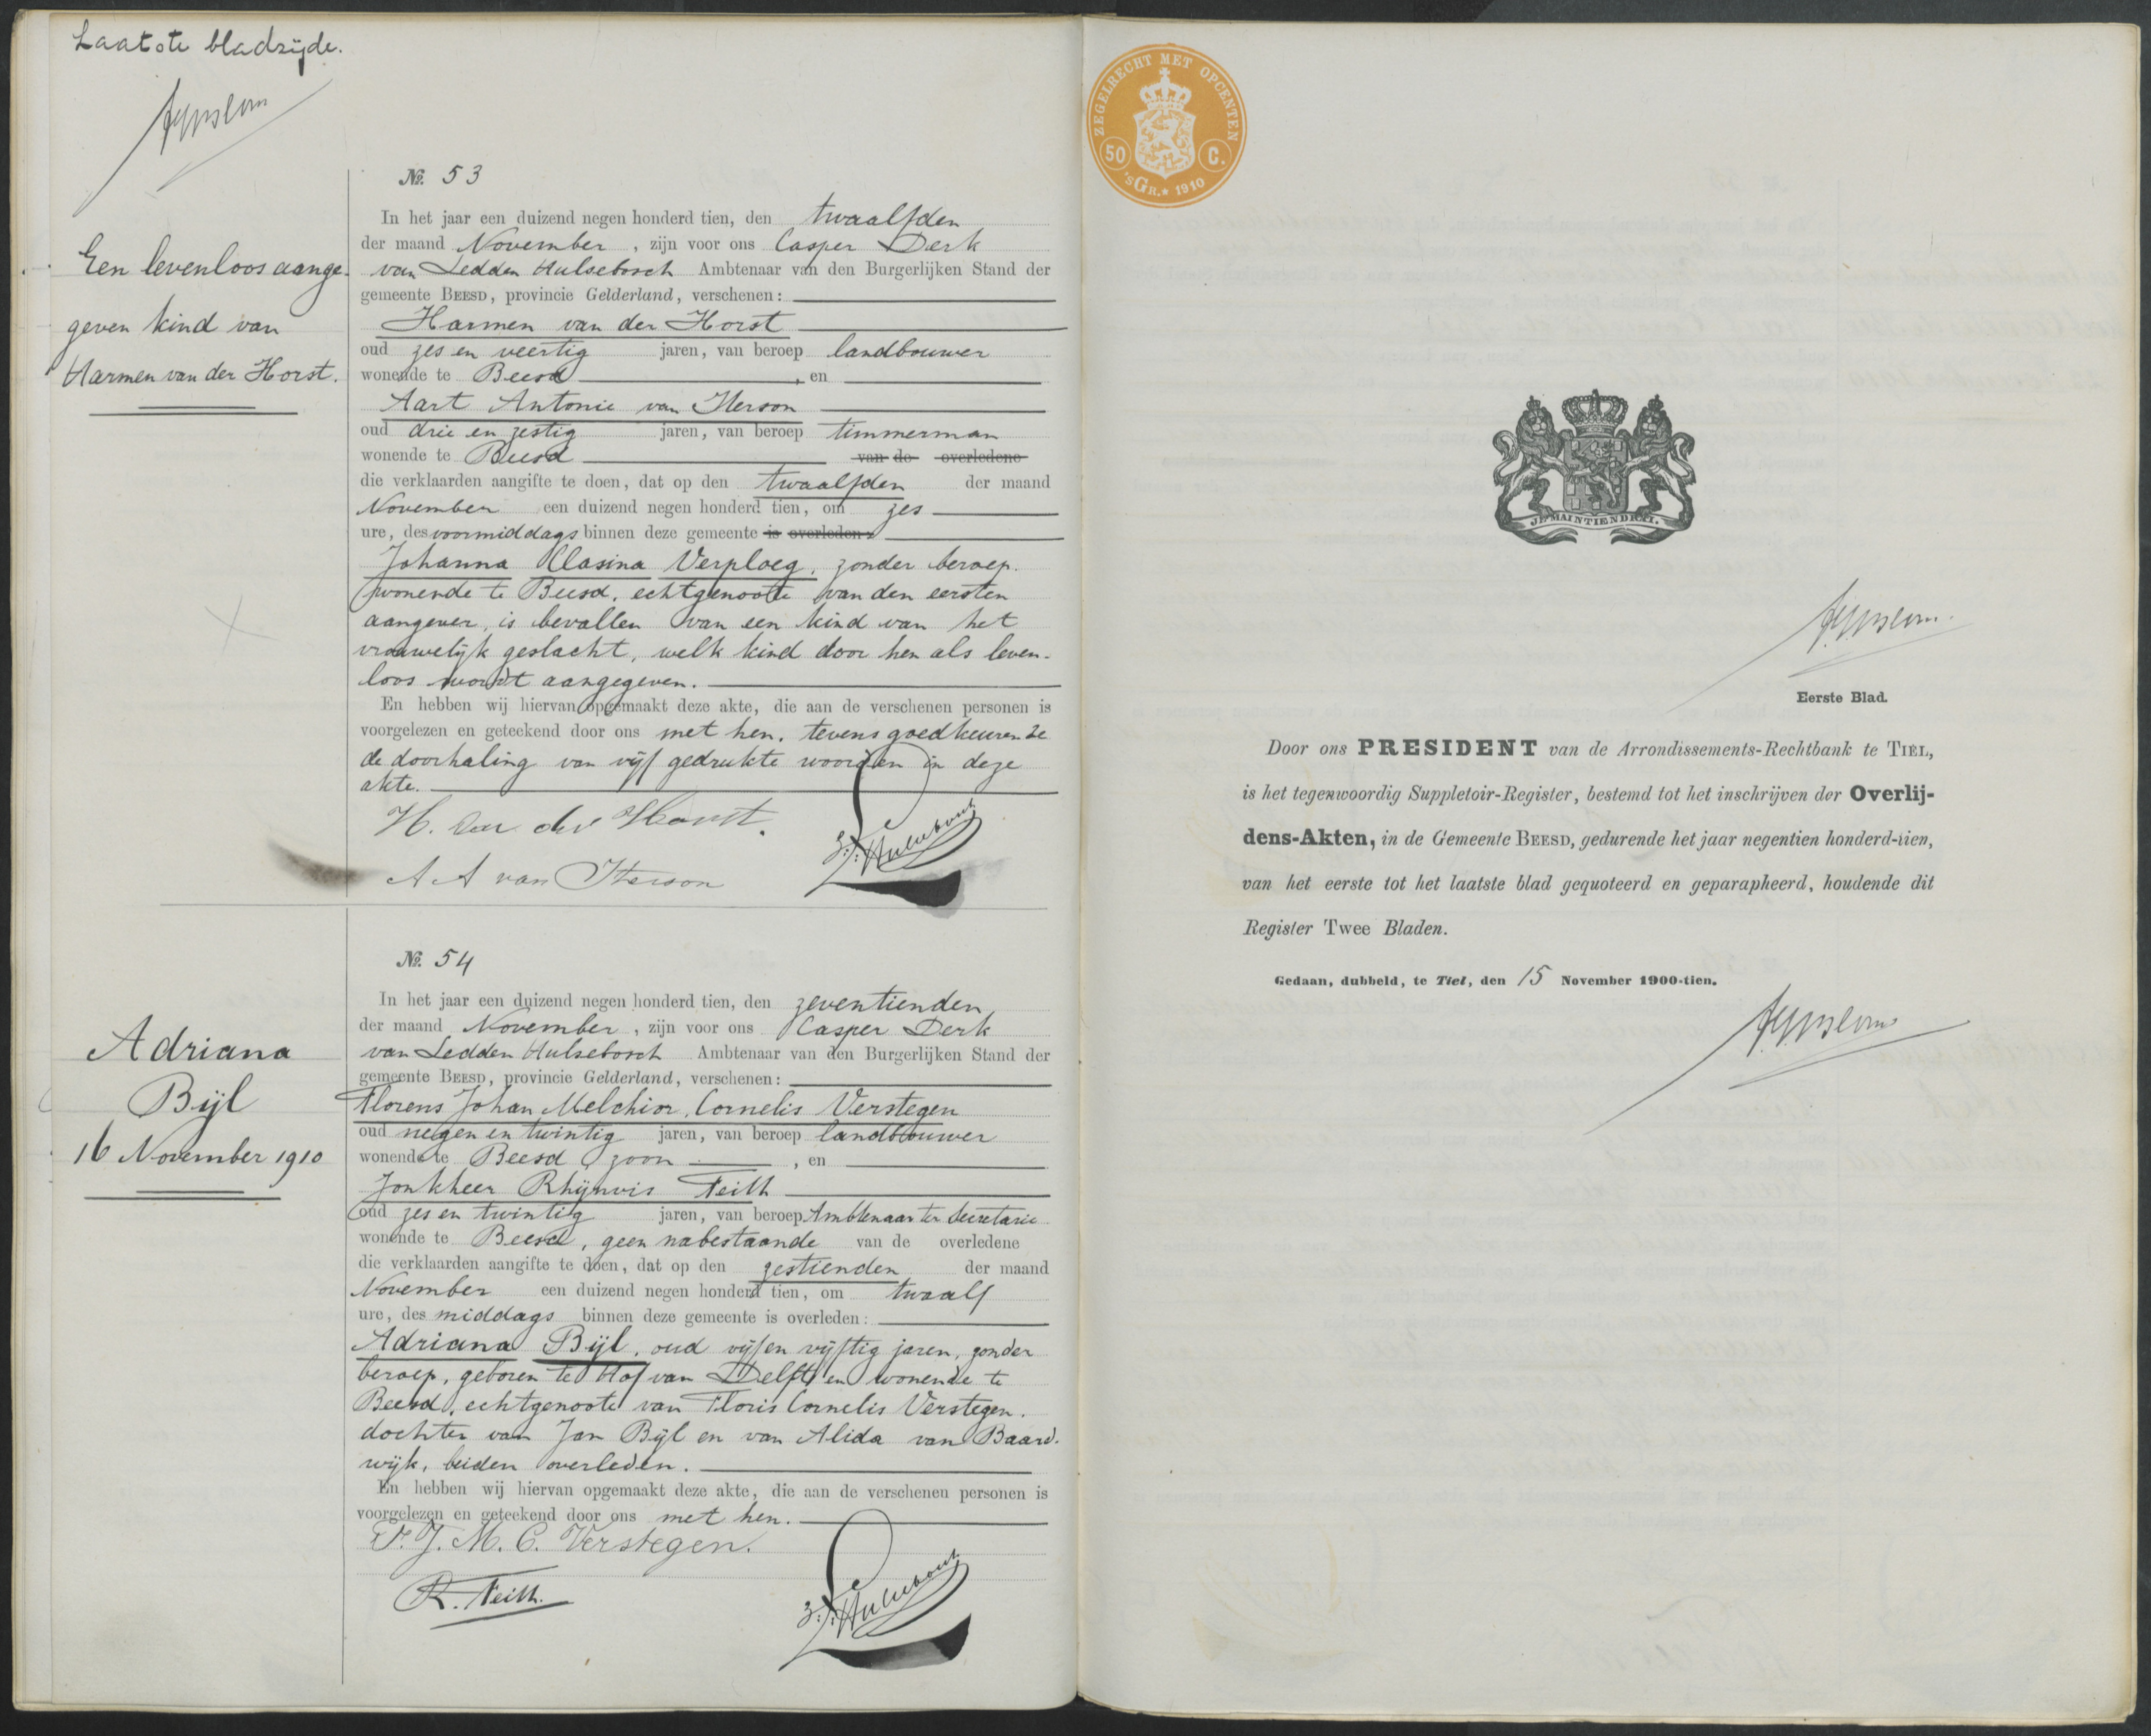 Laatste bladzijde.
No. 53
Een levenloos aange-
geven kind van
Harmen van der Horst.
In het jaar een duizend negen honderd tien, den twaalfden
der maand November, zijn voor ons Casper Derk
van Ledden Hulsebosch Ambtenaar van den Burgerlijken Stand der
gemeente BEESD, provincie Gelderland, verschenen:
Harmen van der Horst
oud zes en veertig jaren, van beroep landbouwer
wonende te Beesd, en
Aart Antonie van Iterson
oud drie en zestig jaren, van beroep timmerman
wonende te Beesd van de overledene
die verklaarden aangifte te doen, dat op den twaalfden der maand
November een duizend negen honderd tien, om zes
ure, des voormiddags binnen deze gemeente is overleden:
Johanna Clasina Verploeg, zonder beroep.
wonende te Beesd, echtgenoote van den eersten
aangever, is bevallen van een kind van het
vrouwelijk geslacht, welk kind door hen als leven-
loos wordt aangegeven.
En hebben wij hiervan opgemaakt deze akte, die aan de verschenen personen is
voorgelezen en geteekend door ons met hen, tevens goedkeurende
de doorhaling van vijf gedrukte woorden in deze
akte.
H. van der Horst.
A A van Iterson
No. 54
Adriana
Bijl
16 November 1910
In het jaar een duizend negen honderd tien, den zeventienden
der maand November, zijn voor ons Casper Derk
van Ledden Hulsebosch Ambtenaar van den Burgerlijken Stand der
gemeente BEESD, provincie Gelderland, verschenen:
Florens Johan Melchior, Cornelis Verstegen
oud negen en twintig jaren, van beroep landbouwer
wonende te Beesd zoon, en
Jonkheer Rhijnvis Feith
oud zes en twintig jaren, van beroep Ambtenaar ter Secretarie
wonende te Beesd, geen nabestaande van de overledene
die verklaarden aangifte te doen, dat op den zestienden der maand
November een duizend negen honderd tien, om twaalf
ure, des middags binnen deze gemeente is overleden:
Adriana Bijl, oud vijf en vijftig jaren, zonder
beroep, geboren te Hof van Delft en wonende te
Beesd, echtgenoote van Floris Cornelis Verstegen.
dochter van Jan Bijl en van Alida van Baard-
wijk, beiden overleden.
En hebben wij hiervan opgemaakt deze akte, die aan de verschenen personen is
voorgelezen en geteekend door ons met hen.
F. J. M. C. Verstegen.
R. Feith.
ZEGELRECHT MET OPCENTEN
50 C.
'sGR. * 1910
JE MAINTIENDRAI.
Eerste Blad.
Door ons PRESIDENT van de Arrondissements-Rechtbank te TIEL,
is het tegenwoordig Suppletoir-Register, bestemd tot het inschrijven der Overlij-
dens-Akten, in de Gemeente BEESD, gedurende het jaar negentien honderd-tien,
van het eerste tot het laatste blad gequoteerd en geparapheerd, houdende dit
Register Twee Bladen.
Gedaan, dubbeld, te Tiel, den 15 November 1900-tien.